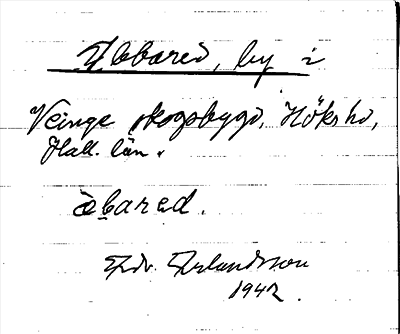 Abbared, by i
Veinge skogsbygd, Höks hd,
Hall. län.
àbared.
Edv. Erlandsson
1942.